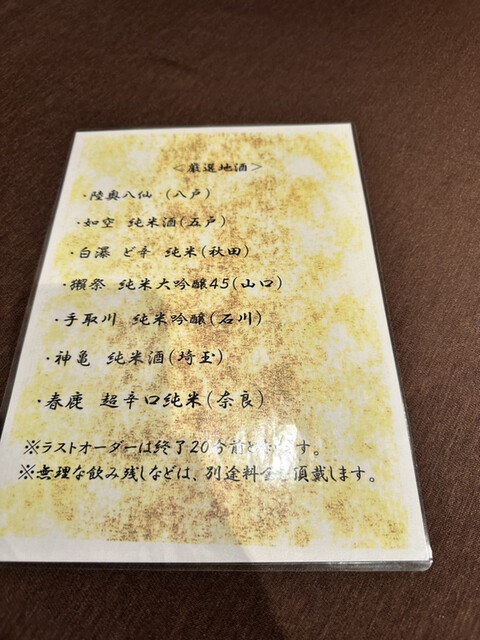 ＜厳選地酒＞
・陸奥八仙　(八戸)
・如空　純米酒(五戸)
・白瀑　ど辛　純米(秋田)
・獺祭　純米大吟醸45(山口)
・手取川　純米吟醸(石川)
・神亀　純米酒(埼玉)
・春鹿　超辛口純米(奈良)
※ラストオーダーは終了20分前となります。
※無理な飲み残しなどは、別途料金を頂戴します。